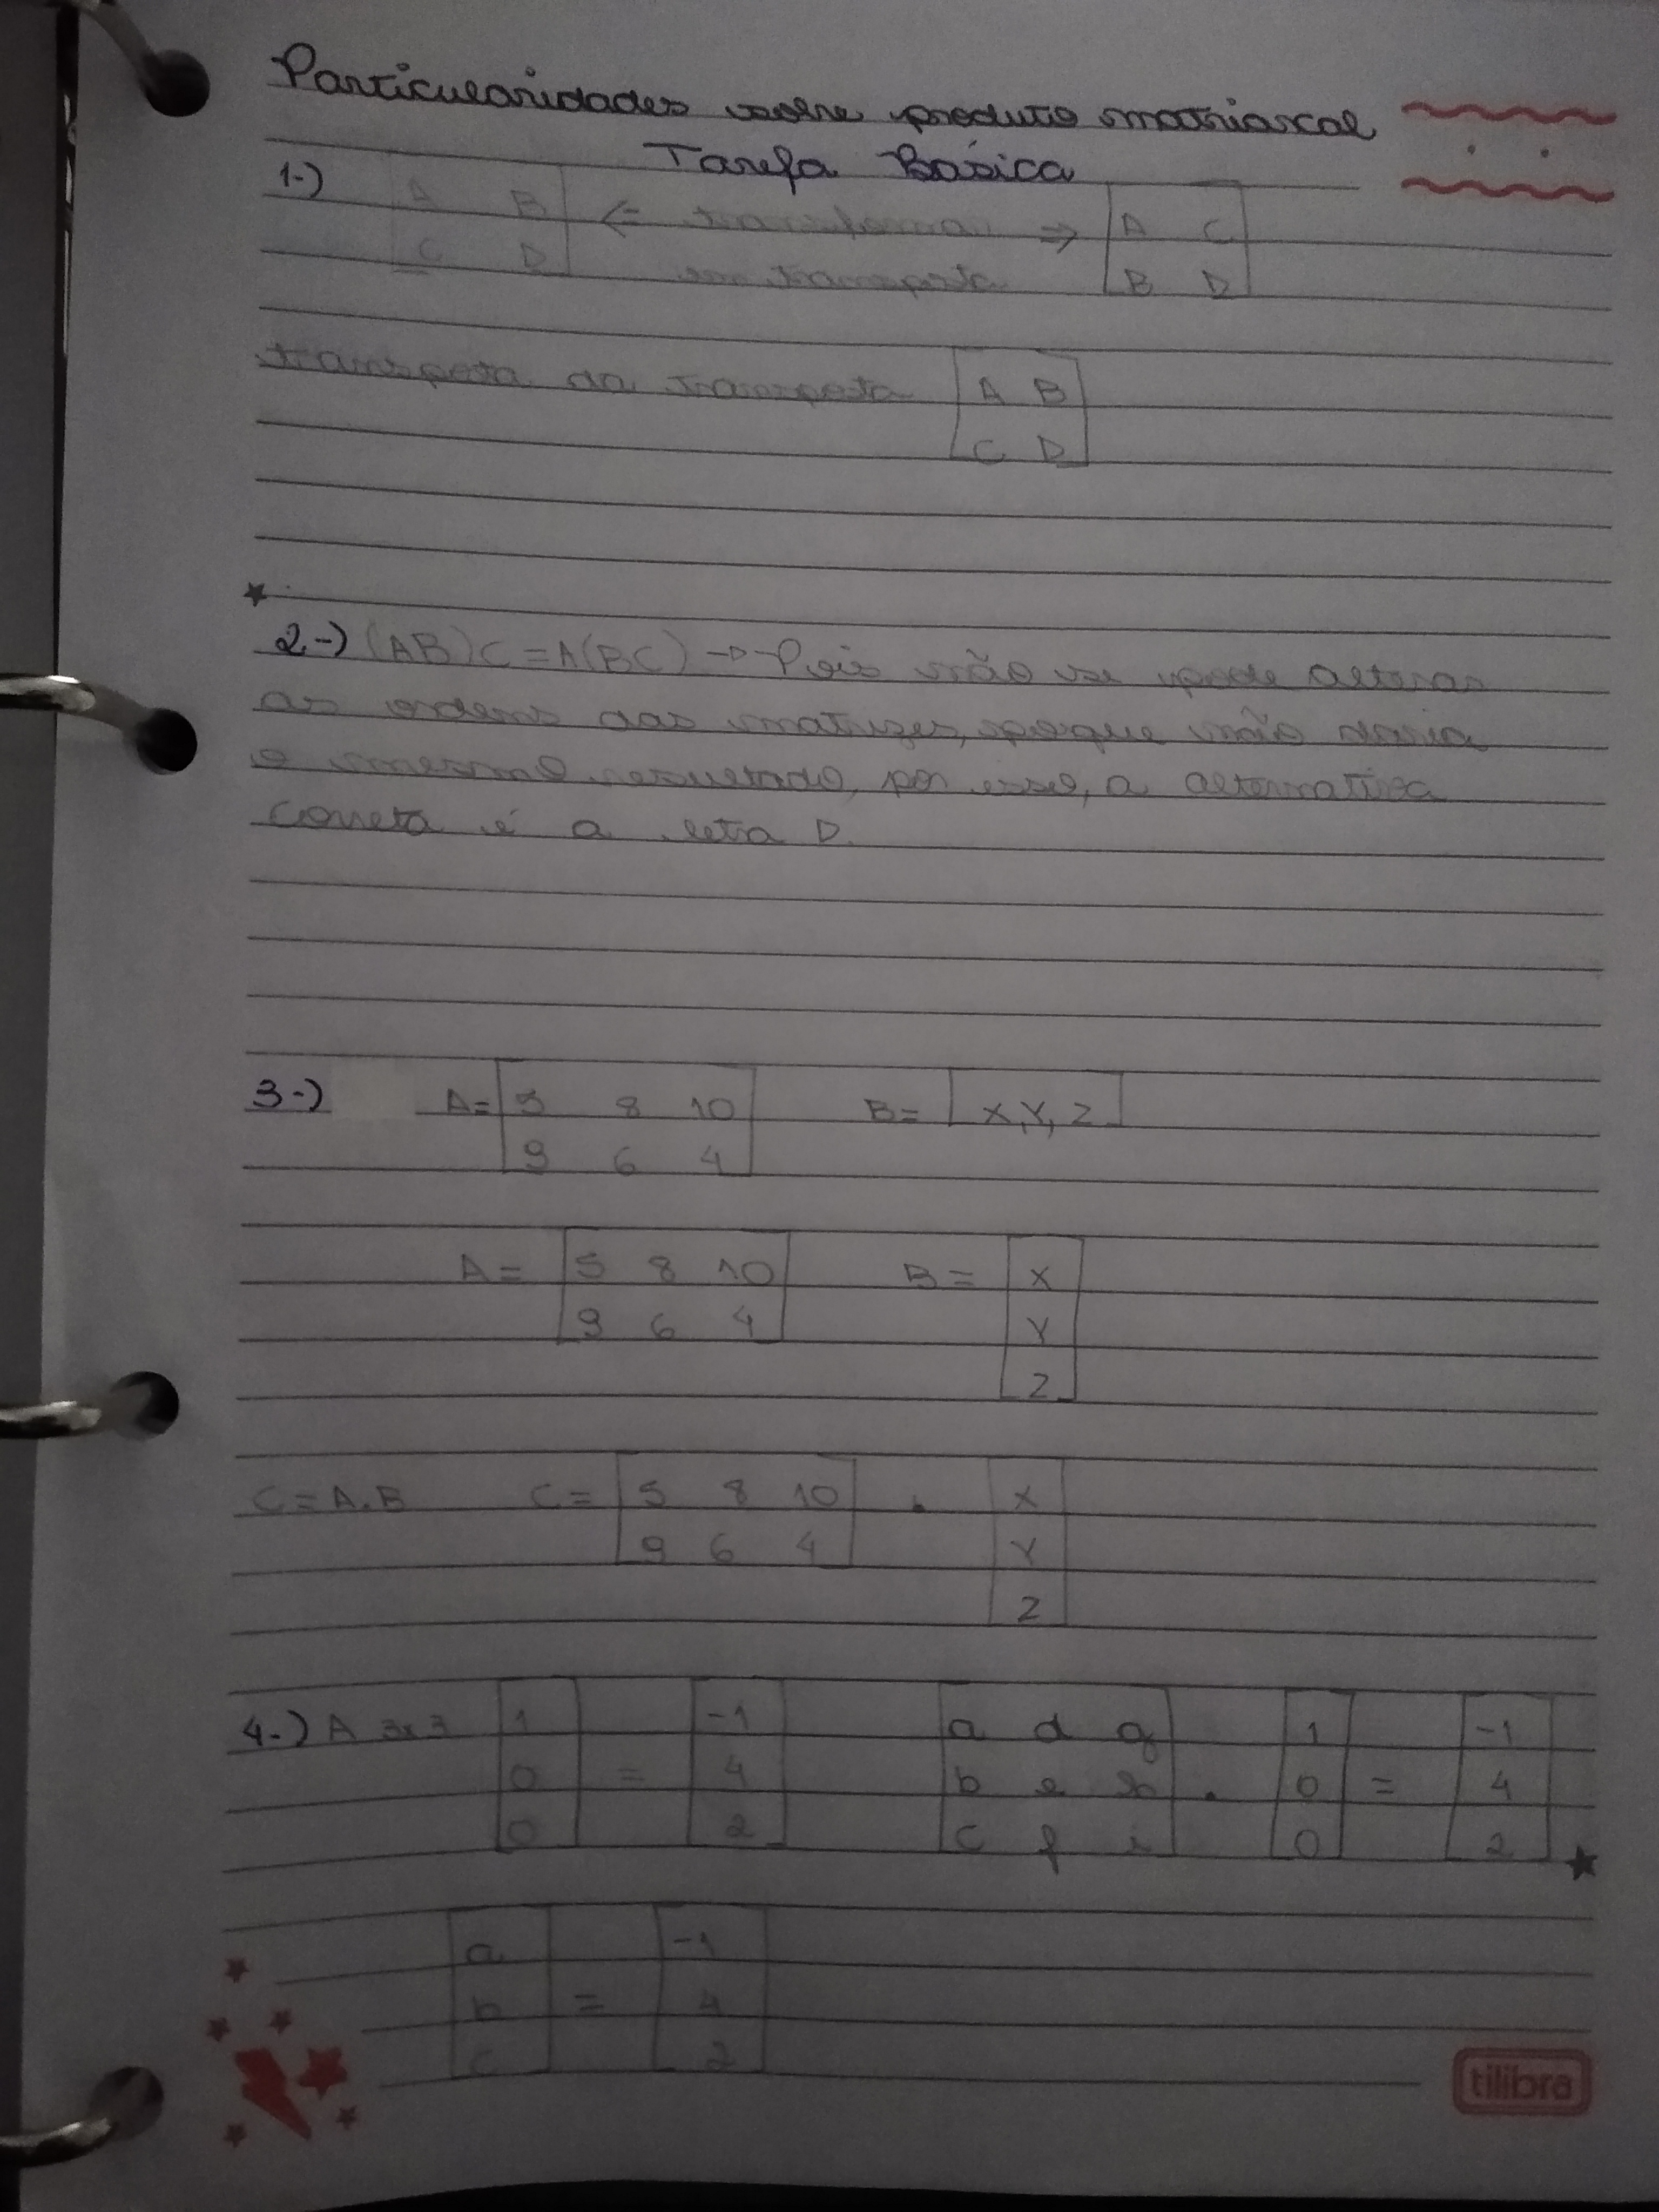 Particularidades sobre produto matriarcal
Tarefa Básica
1-) A B <= transformar => A C
C D em transposta B D
transposta da transposta A B
C D
2-) (AB)C = A(BC) -> Pois não se pode alterar
as ordens das matrizes, porque não daria
o mesmo resultado, por isso, a alternativa
correta é a letra D.
3-) A= 5 8 10 B= X, Y, Z
9 6 4
A= 5 8 10 B = X
9 6 4 Y
Z
C=A.B C= 5 8 10 . X
9 6 4 Y
Z
4-) A 3x3 1 -1 a d g 1 -1
0 = 4 b e h . 0 = 4
0 2 c f i 0 2
a -1
b = 4
c 2
tilibra